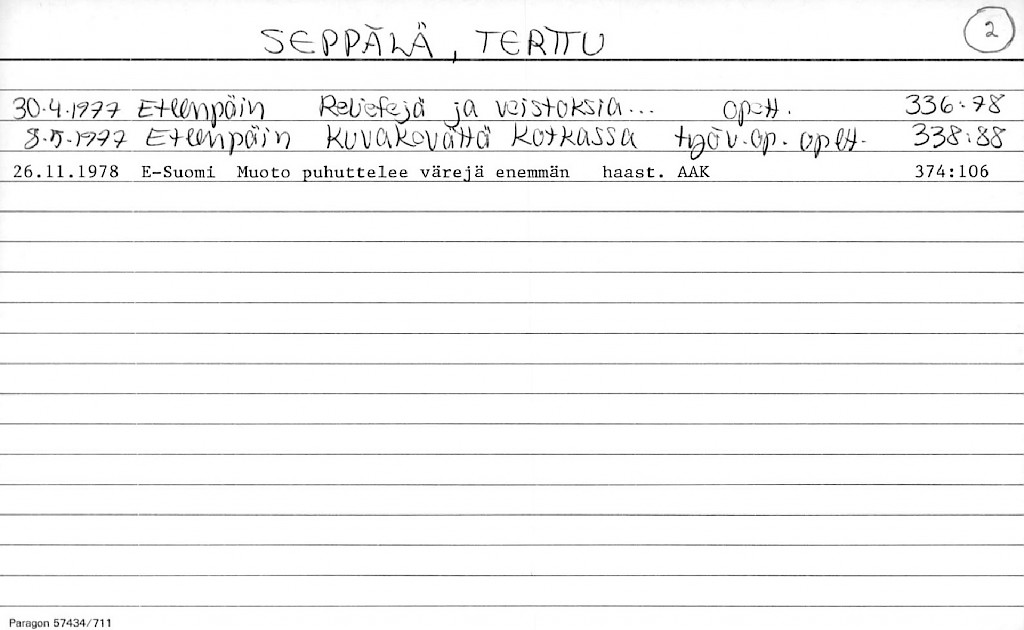 SEPPÄLÄ, TERTTU 2
30.4.1977 Eteenpäin Reliefejä ja veistoksia... opett. 336:78
8.5.1977 Eteenpäin Kuvakevättä Kotkassa työv.op. opett. 338:88
26.11.1978 E-Suomi Muoto puhuttelee värejä enemmän haast. AAK 374:106
Paragon 57434/711